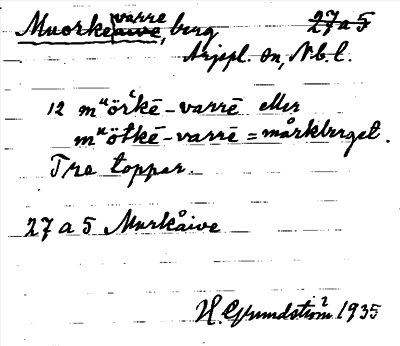 Muorkeaive varre, berg 27a5
Arjepl. sn, Nb.l.
12 mᵘörˈkē-varrē eller
mᵘötkē-varrē = mårkberget.
Tre toppar.
27 a 5 Murkåive
H. Grundström 1935